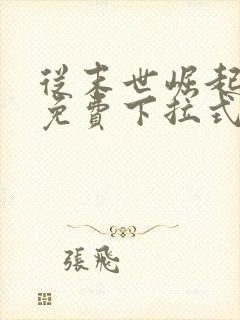 從末世崛起
免費下拉式
張飛